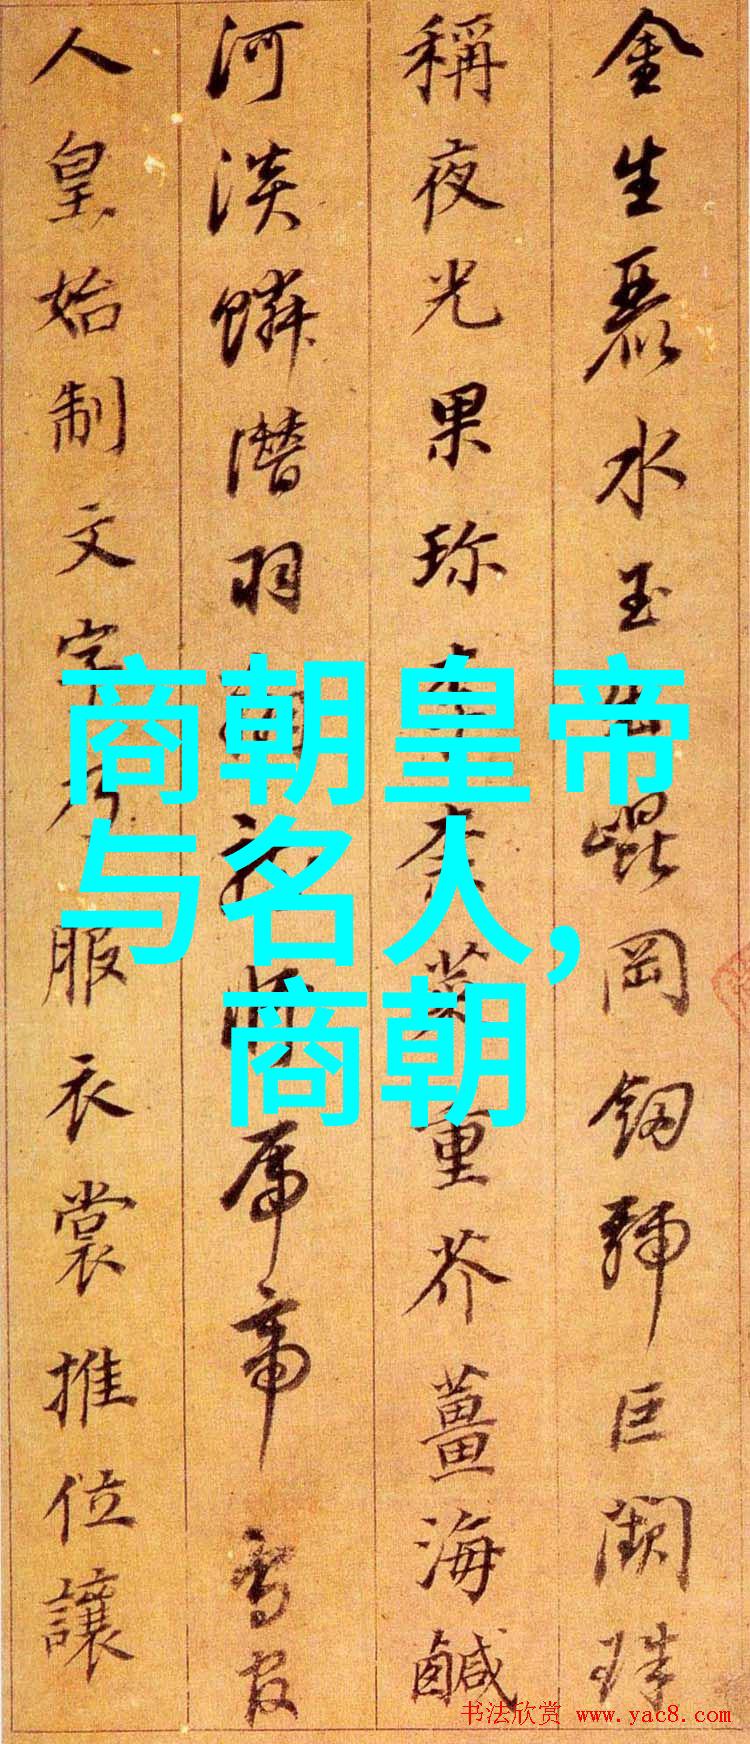 金生麗水玉出崐岡劔號巨闕珠
稱夜光果珎李柰菜重芥薑海鹹
河淡鱗潛羽翔師帝鳥官
人皇始制文字乃服衣裳推位讓
商朝皇帝
与名人,
商朝
书法欣赏 www.yac8.com